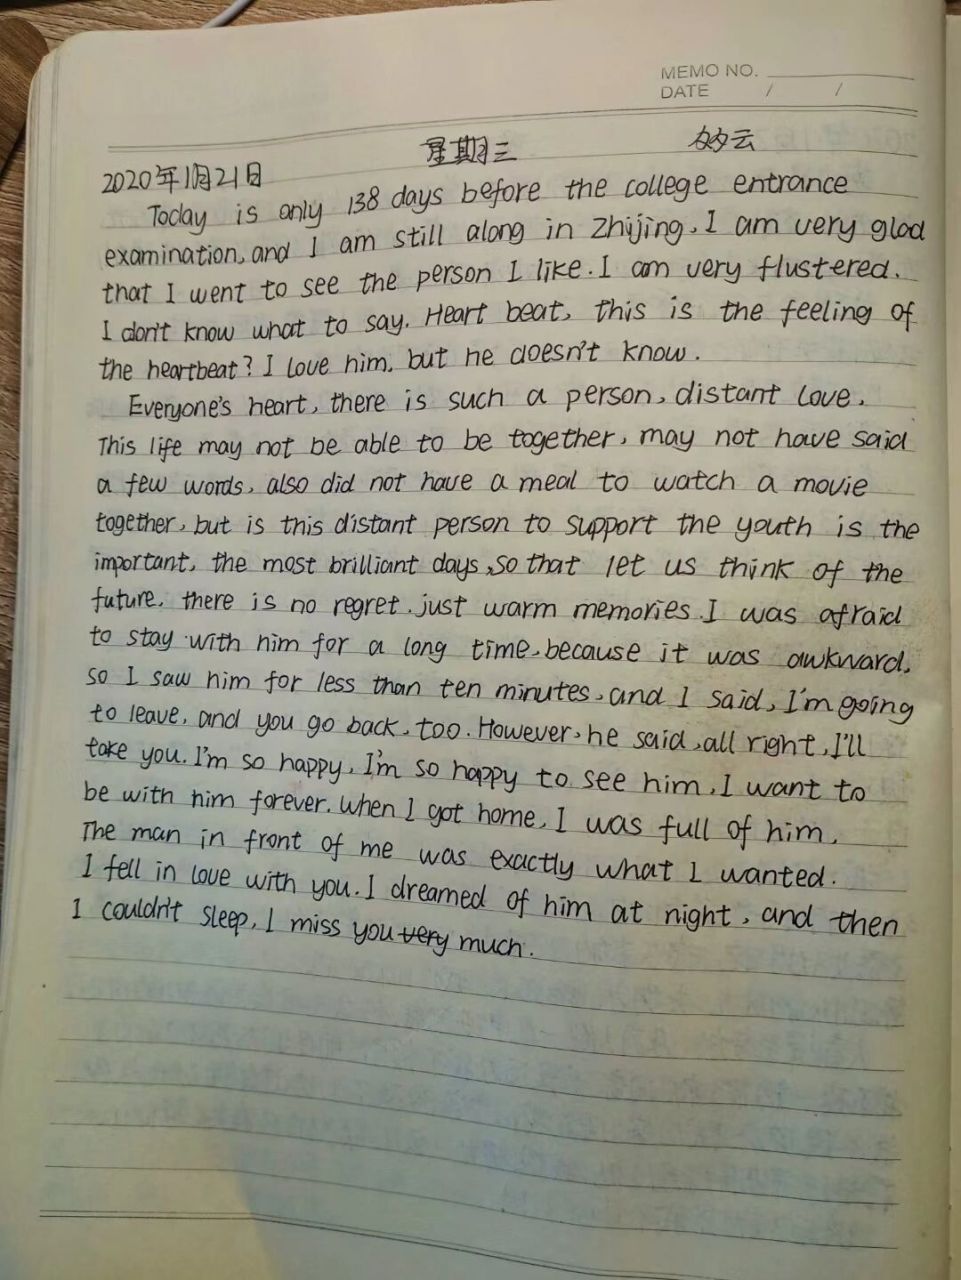 MEMO NO.
DATE / /
2020年1月21日 星期三 多云
Today is only 138 days before the college entrance
examination, and I am still along in Zhijing. I am very glad
that I went to see the person I like. I am very flustered.
I don't know what to say. Heart beat, this is the feeling of
the heartbeat? I love him, but he doesn't know.
Everyone's heart, there is such a person, distant love.
This life may not be able to be together, may not have said
a few words, also did not have a meal to watch a movie
together, but is this distant person to support the youth is the
important, the most brilliant days, so that let us think of the
future. there is no regret. just warm memories. I was afraid
to stay with him for a long time, because it was awkward,
so I saw him for less than ten minutes, and I said, I'm going
to leave, and you go back, too. However, he said, all right, I'll
take you. I'm so happy, I'm so happy to see him, I want to
be with him forever. When I got home, I was full of him,
The man in front of me was exactly what I wanted.
I fell in love with you. I dreamed of him at night, and then
I couldn't sleep, I miss you very much.